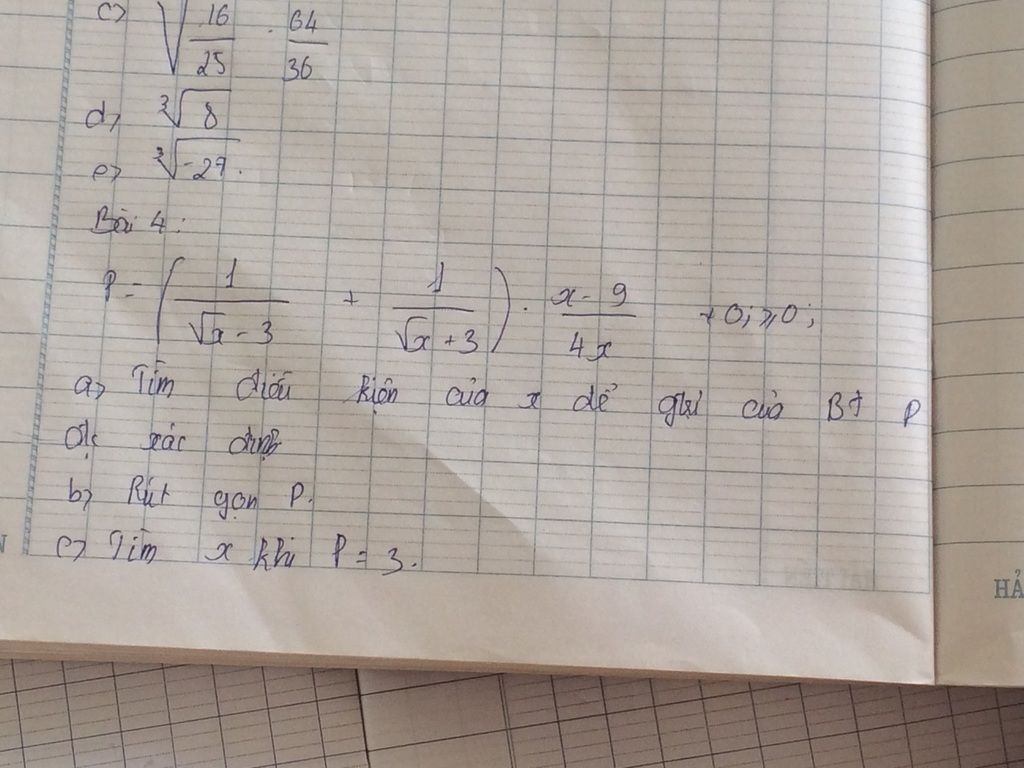 c) √16/25 · 64/36
d) ³√8
e) ³√-27.
Bài 4:
P = (1/(√x - 3) + 1/(√x + 3)) · (x - 9)/4x ≠ 0; ≥ 0;
a) Tìm điều kiện của x để giá trị của BT P
đc xác định
b) Rút gọn P.
c) Tìm x khi P = 3.
HẢ